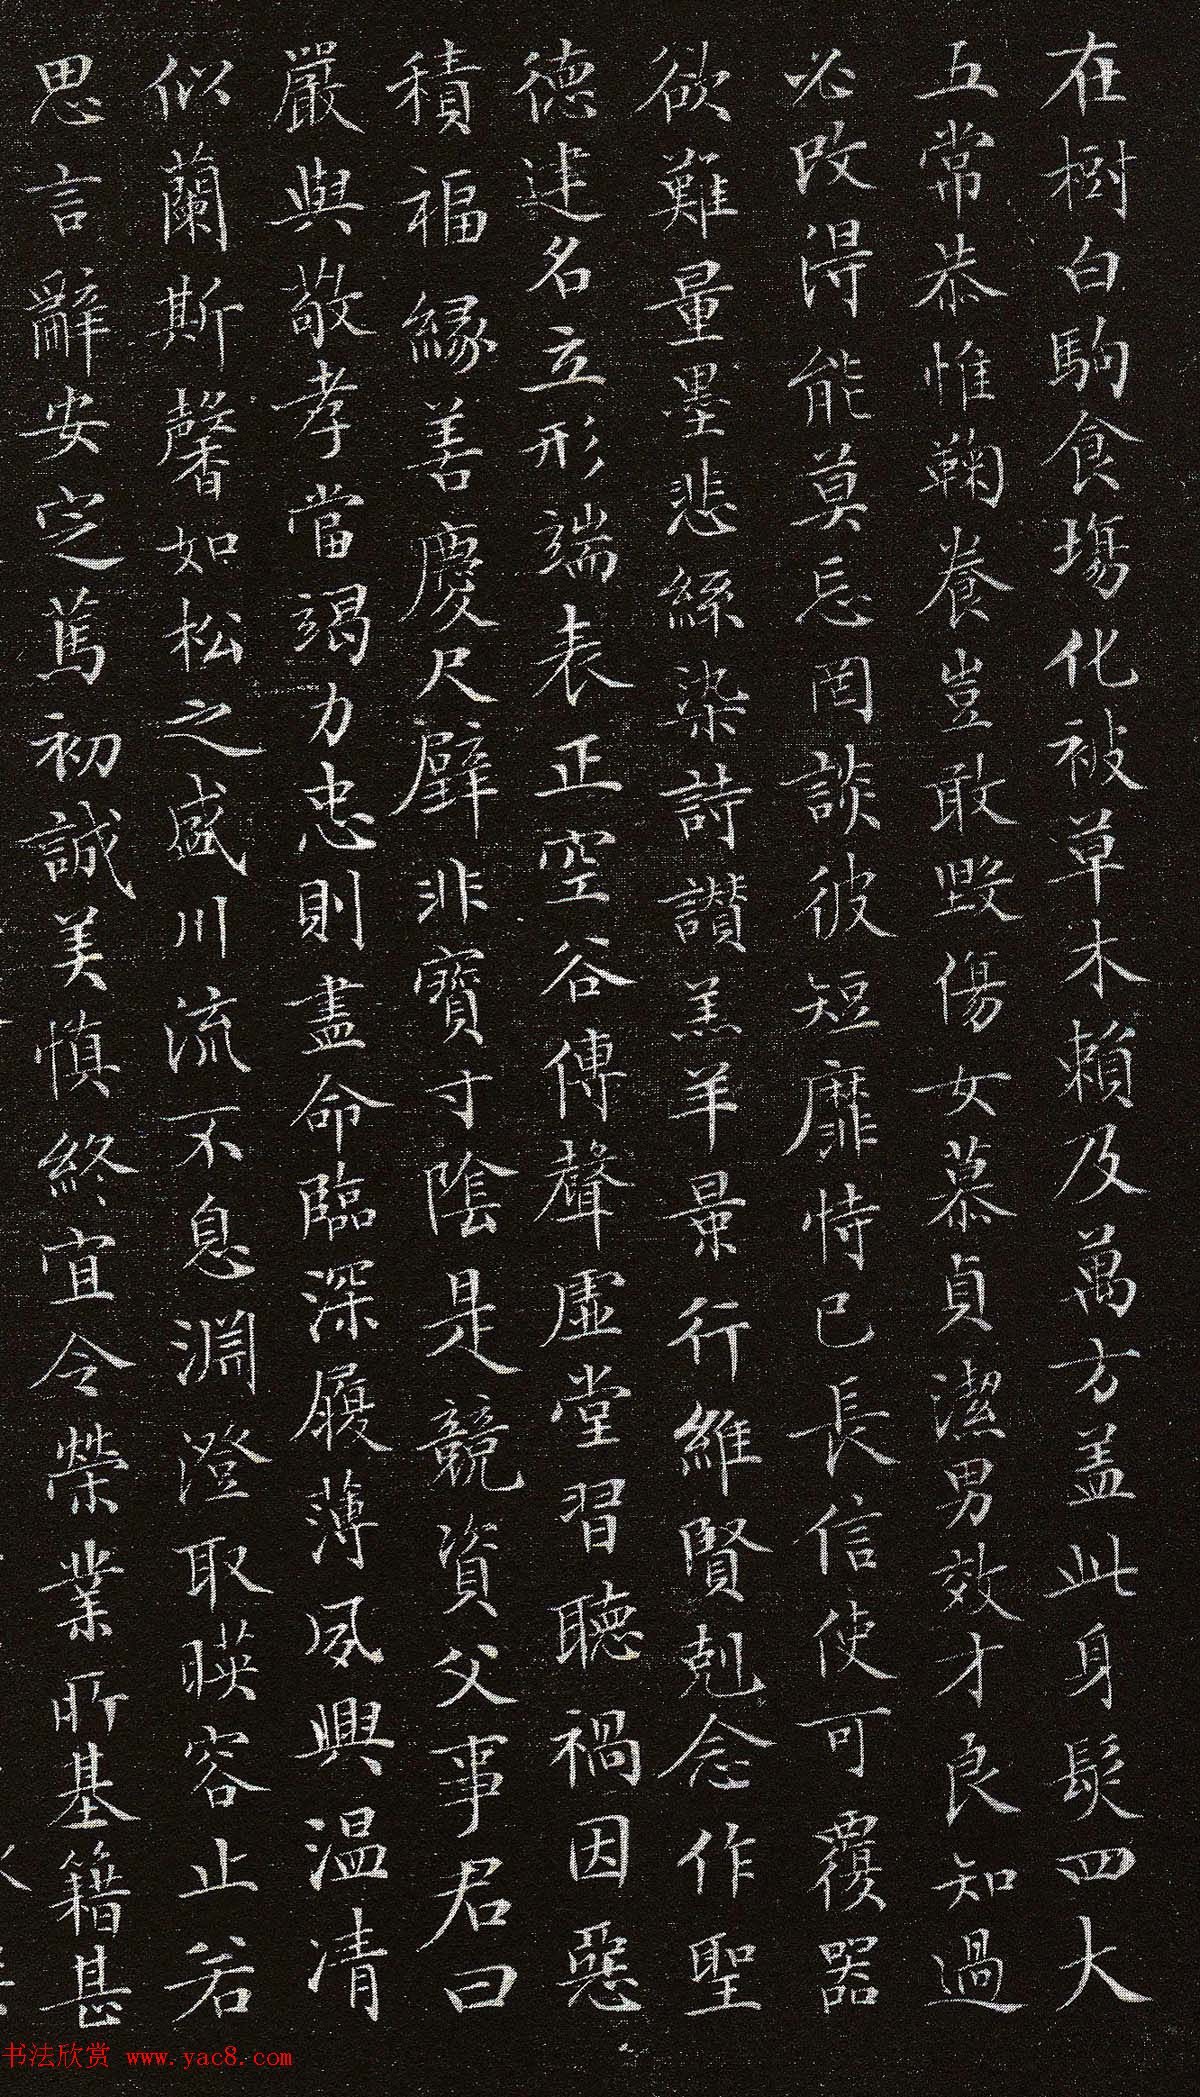 在樹白駒食塲化被草木賴及萬方盖此身髮四大
五常恭惟鞠養豈敢毀傷女慕貞潔男效才良知過
必改得能莫忘罔談彼短靡恃己長信使可覆器
欲難量墨悲絲染詩讚羔羊景行維賢剋念作聖
德建名立形端表正空谷傳聲虛堂習聽禍因惡
積福緣善慶尺璧非寶寸陰是競資父事君曰
嚴與敬孝當竭力忠則盡命臨深履薄夙興温凊
似蘭斯馨如松之盛川流不息淵澄取暎容止若
思言辭安定篤初誠美慎終宜令榮業所基籍甚
书法欣赏 www.yac8.com